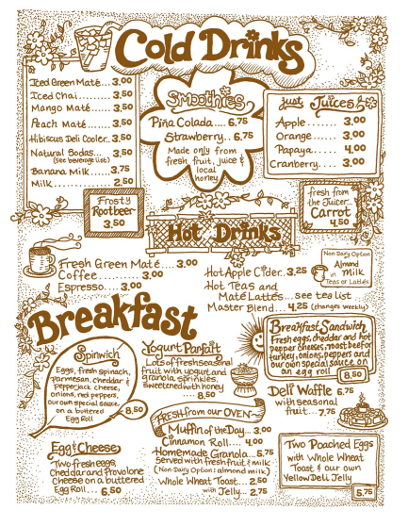 Cold Drinks
Iced Green Maté.... 3.00
Iced Chai............. 3.50
Mango Maté...... 3.50
Peach Maté........ 3.50
Hibiscus Deli Cooler..3.50
Natural Sodas.... 3.50
(see beverage list)
Banana Milk....... 3.75
Milk.................. 2.50
Smoothies
Piña Colada.... 6.75
Strawberry.. 6.75
Made only from
fresh fruit, juice &
local
honey
Just Juices
Apple........ 3.00
Orange....... 3.00
Papaya....... 4.00
Cranberry..... 3.00
Frosty
Rootbeer
3.50
fresh from
the Juicer
Carrot
4.50
Hot Drinks
Fresh Green Maté.... 3.00
Coffee............ 3.00
Espresso..... 3.00
Hot Apple Cider. 3.25
Hot Teas and
Maté Lattés... see tea list
Master Blend... 4.25 (changes weekly)
Non Dairy Option
Almond
Milk
in
Teas or Lattés
Breakfast
"Spinwich"
Eggs, fresh spinach,
parmesan, cheddar &
pepperjack cheese,
onions, red peppers,
our own special sauce
on a buttered
Egg Roll
8.50
Egg & Cheese
Two fresh eggs,
cheddar and provolone
cheese on a buttered
Egg Roll... 6.50
Yogurt Parfait
Lots of fresh seasonal
fruit with yogurt and
granola sprinkles,
sweetened with honey
....... 8.50
FRESH from our OVEN
Muffin of the Day... 3.00
Cinnamon Roll.... 4.00
Homemade Granola...5.75
served with fresh fruit & milk
(Non Dairy Option: almond milk)
Whole Wheat Toast... 2.50
with Jelly... 2.75
Breakfast Sandwich
Fresh eggs, cheddar and hot
pepper cheeses, roast beef or
turkey, onions, peppers and
our own special sauce on
an egg roll
8.50
Deli Waffle 6.75
with seasonal
fruit... 7.75
Two Poached Eggs
with Whole Wheat
Toast & our own
Yellow Deli Jelly
5.75